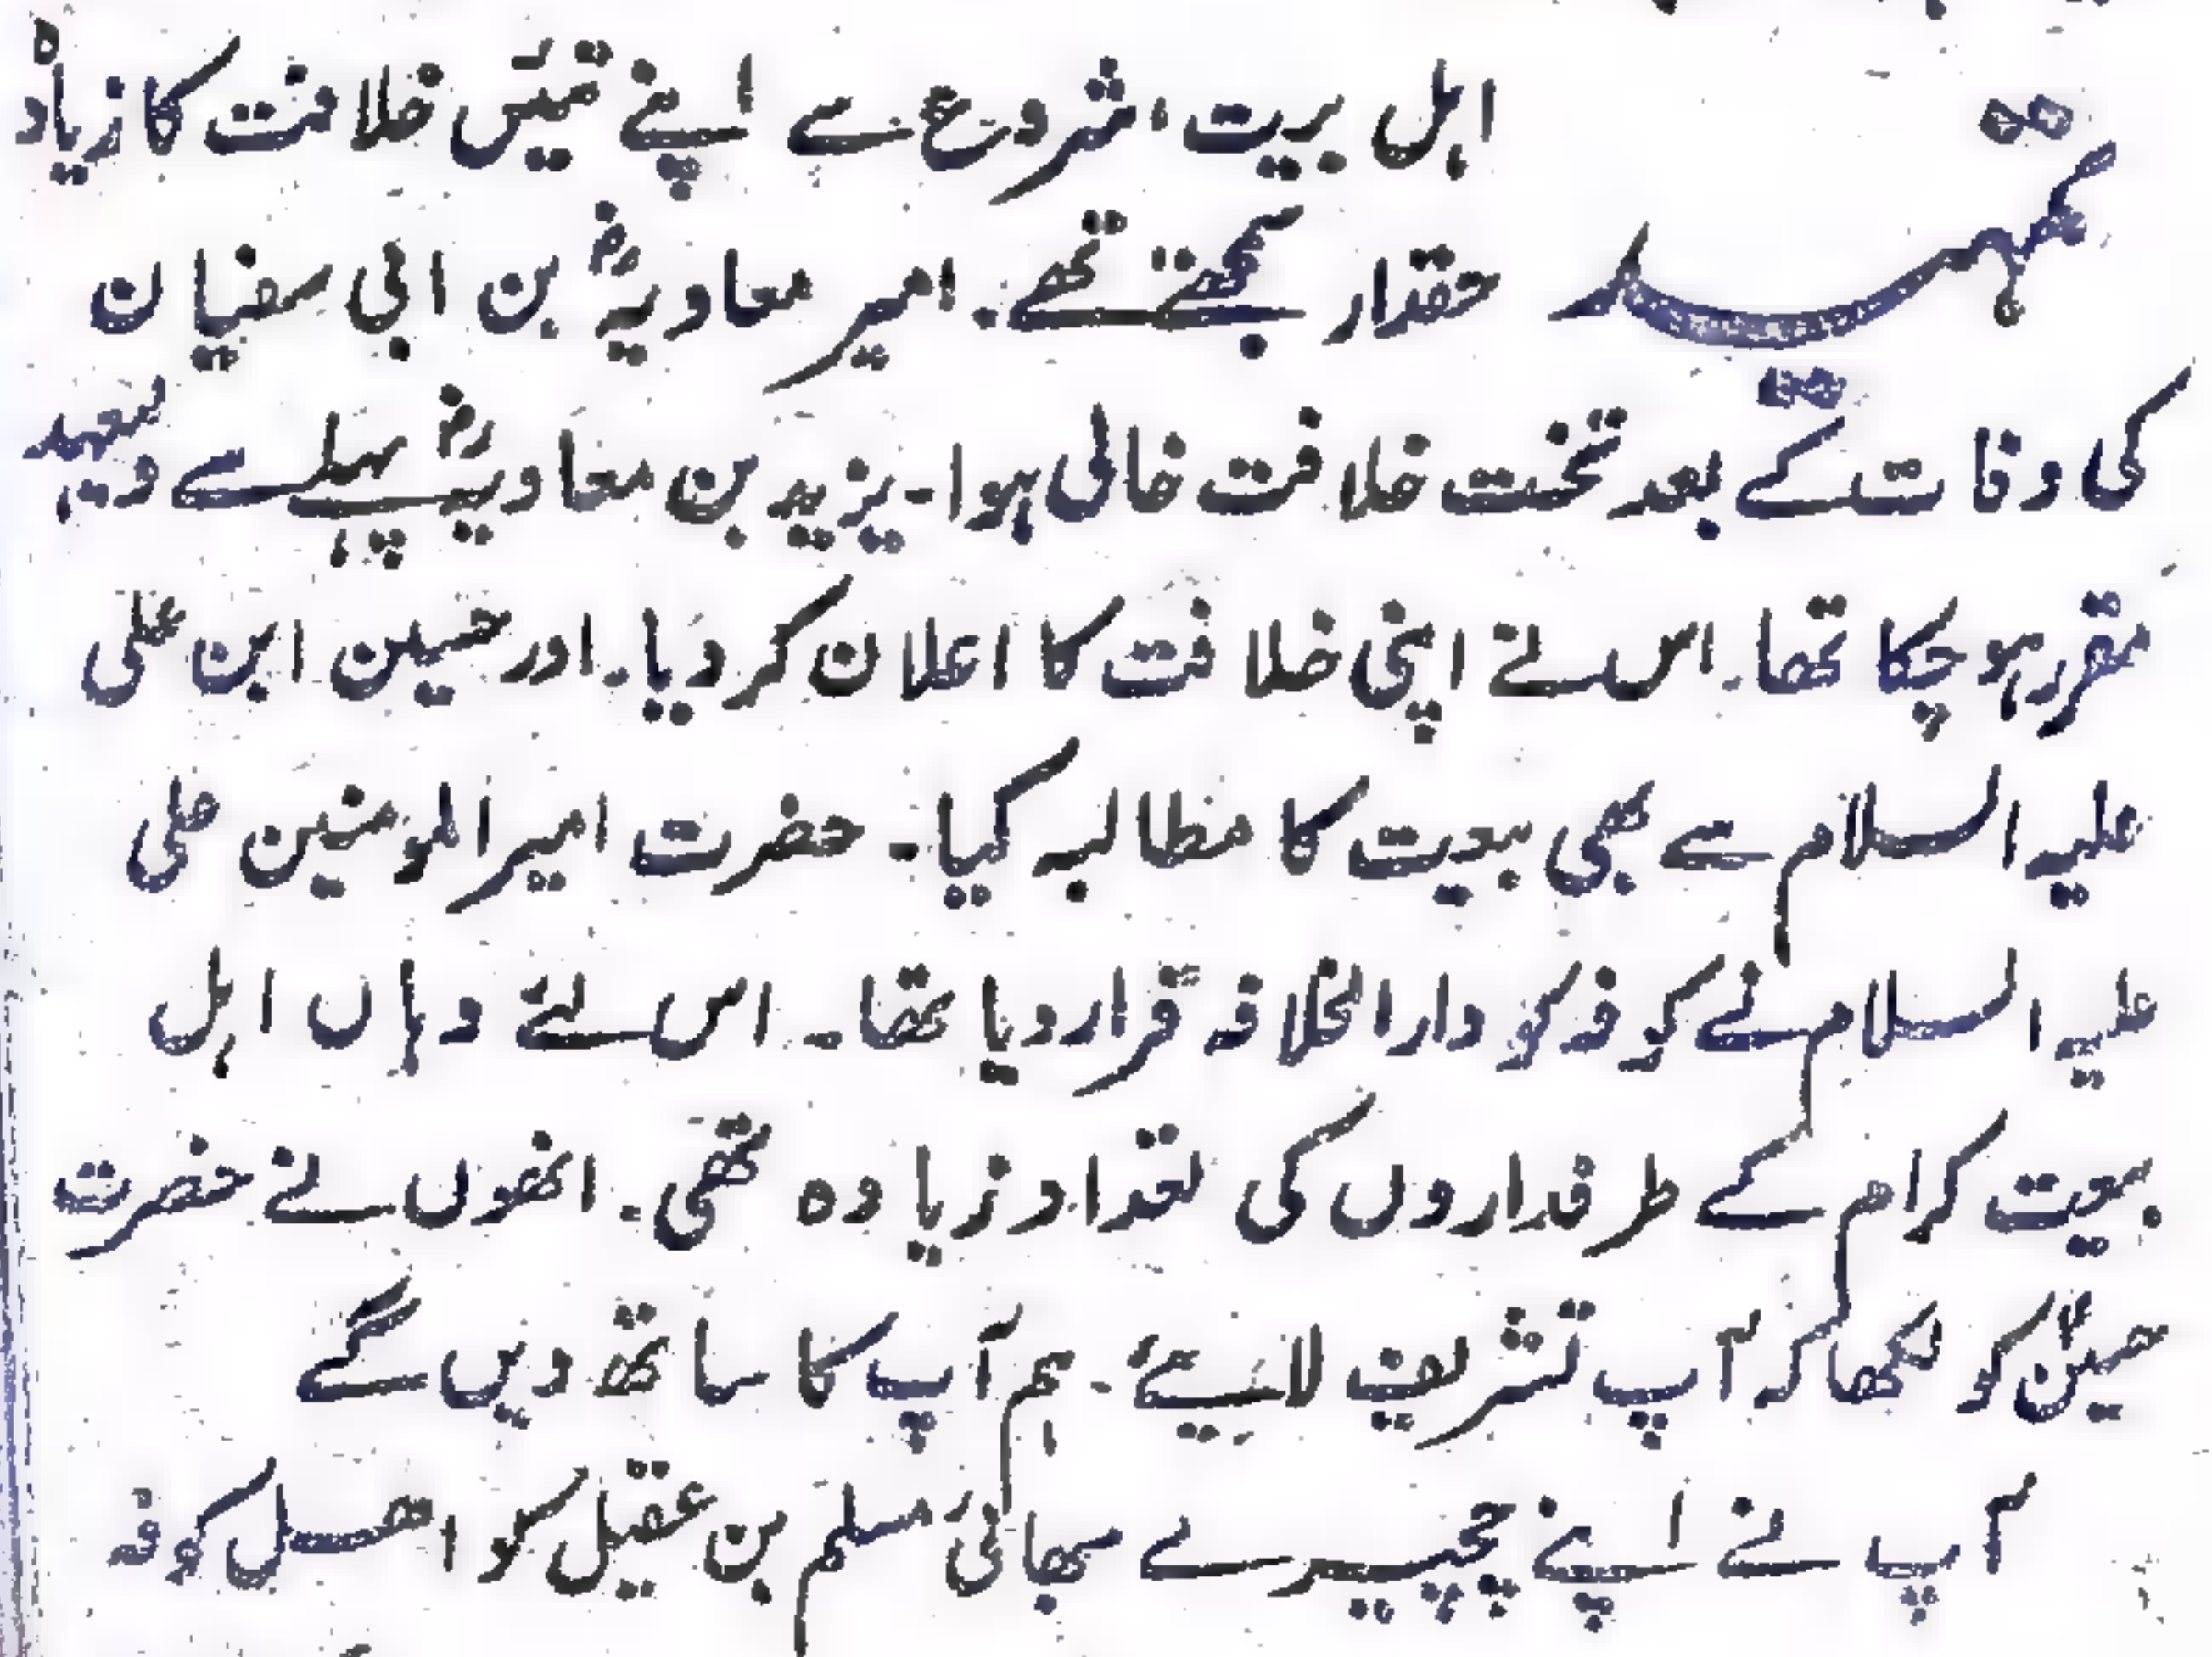 تمہید
اہل بریت، شروع سے اپنے تئیں خلافت کا زیادہ
حقدار سمجھتے تھے۔ امیر معاویہؓ بن ابی سفیان
کی وفات کے بعد تخت خلافت خالی ہوا۔ یزید بن معاویہؓ پہلے سے ولیعہد
مقرر ہو چکا تھا۔ اس نے اپنی خلافت کا اعلان کر دیا۔ اور حسین ابن علی
علیہ السلام سے بھی بعیت کا مطالبہ کیا۔ حضرت امیر المومنین علی
علیہ السلام نے کوفہ کو دار الخلافہ قرار دیا تھا۔ اس لئے وہاں اہل
بیت کرام کے طرفداروں کی تعداد زیادہ تھی۔ انھوں نے حضرت
حسینؑ کو لکھا کہ آپ تشریف لائیے۔ ہم آپ کا ساتھ دیں گے
آپ نے اپنے چچیرے بھائی مسلم بن عقیل کو اھل کوفہ